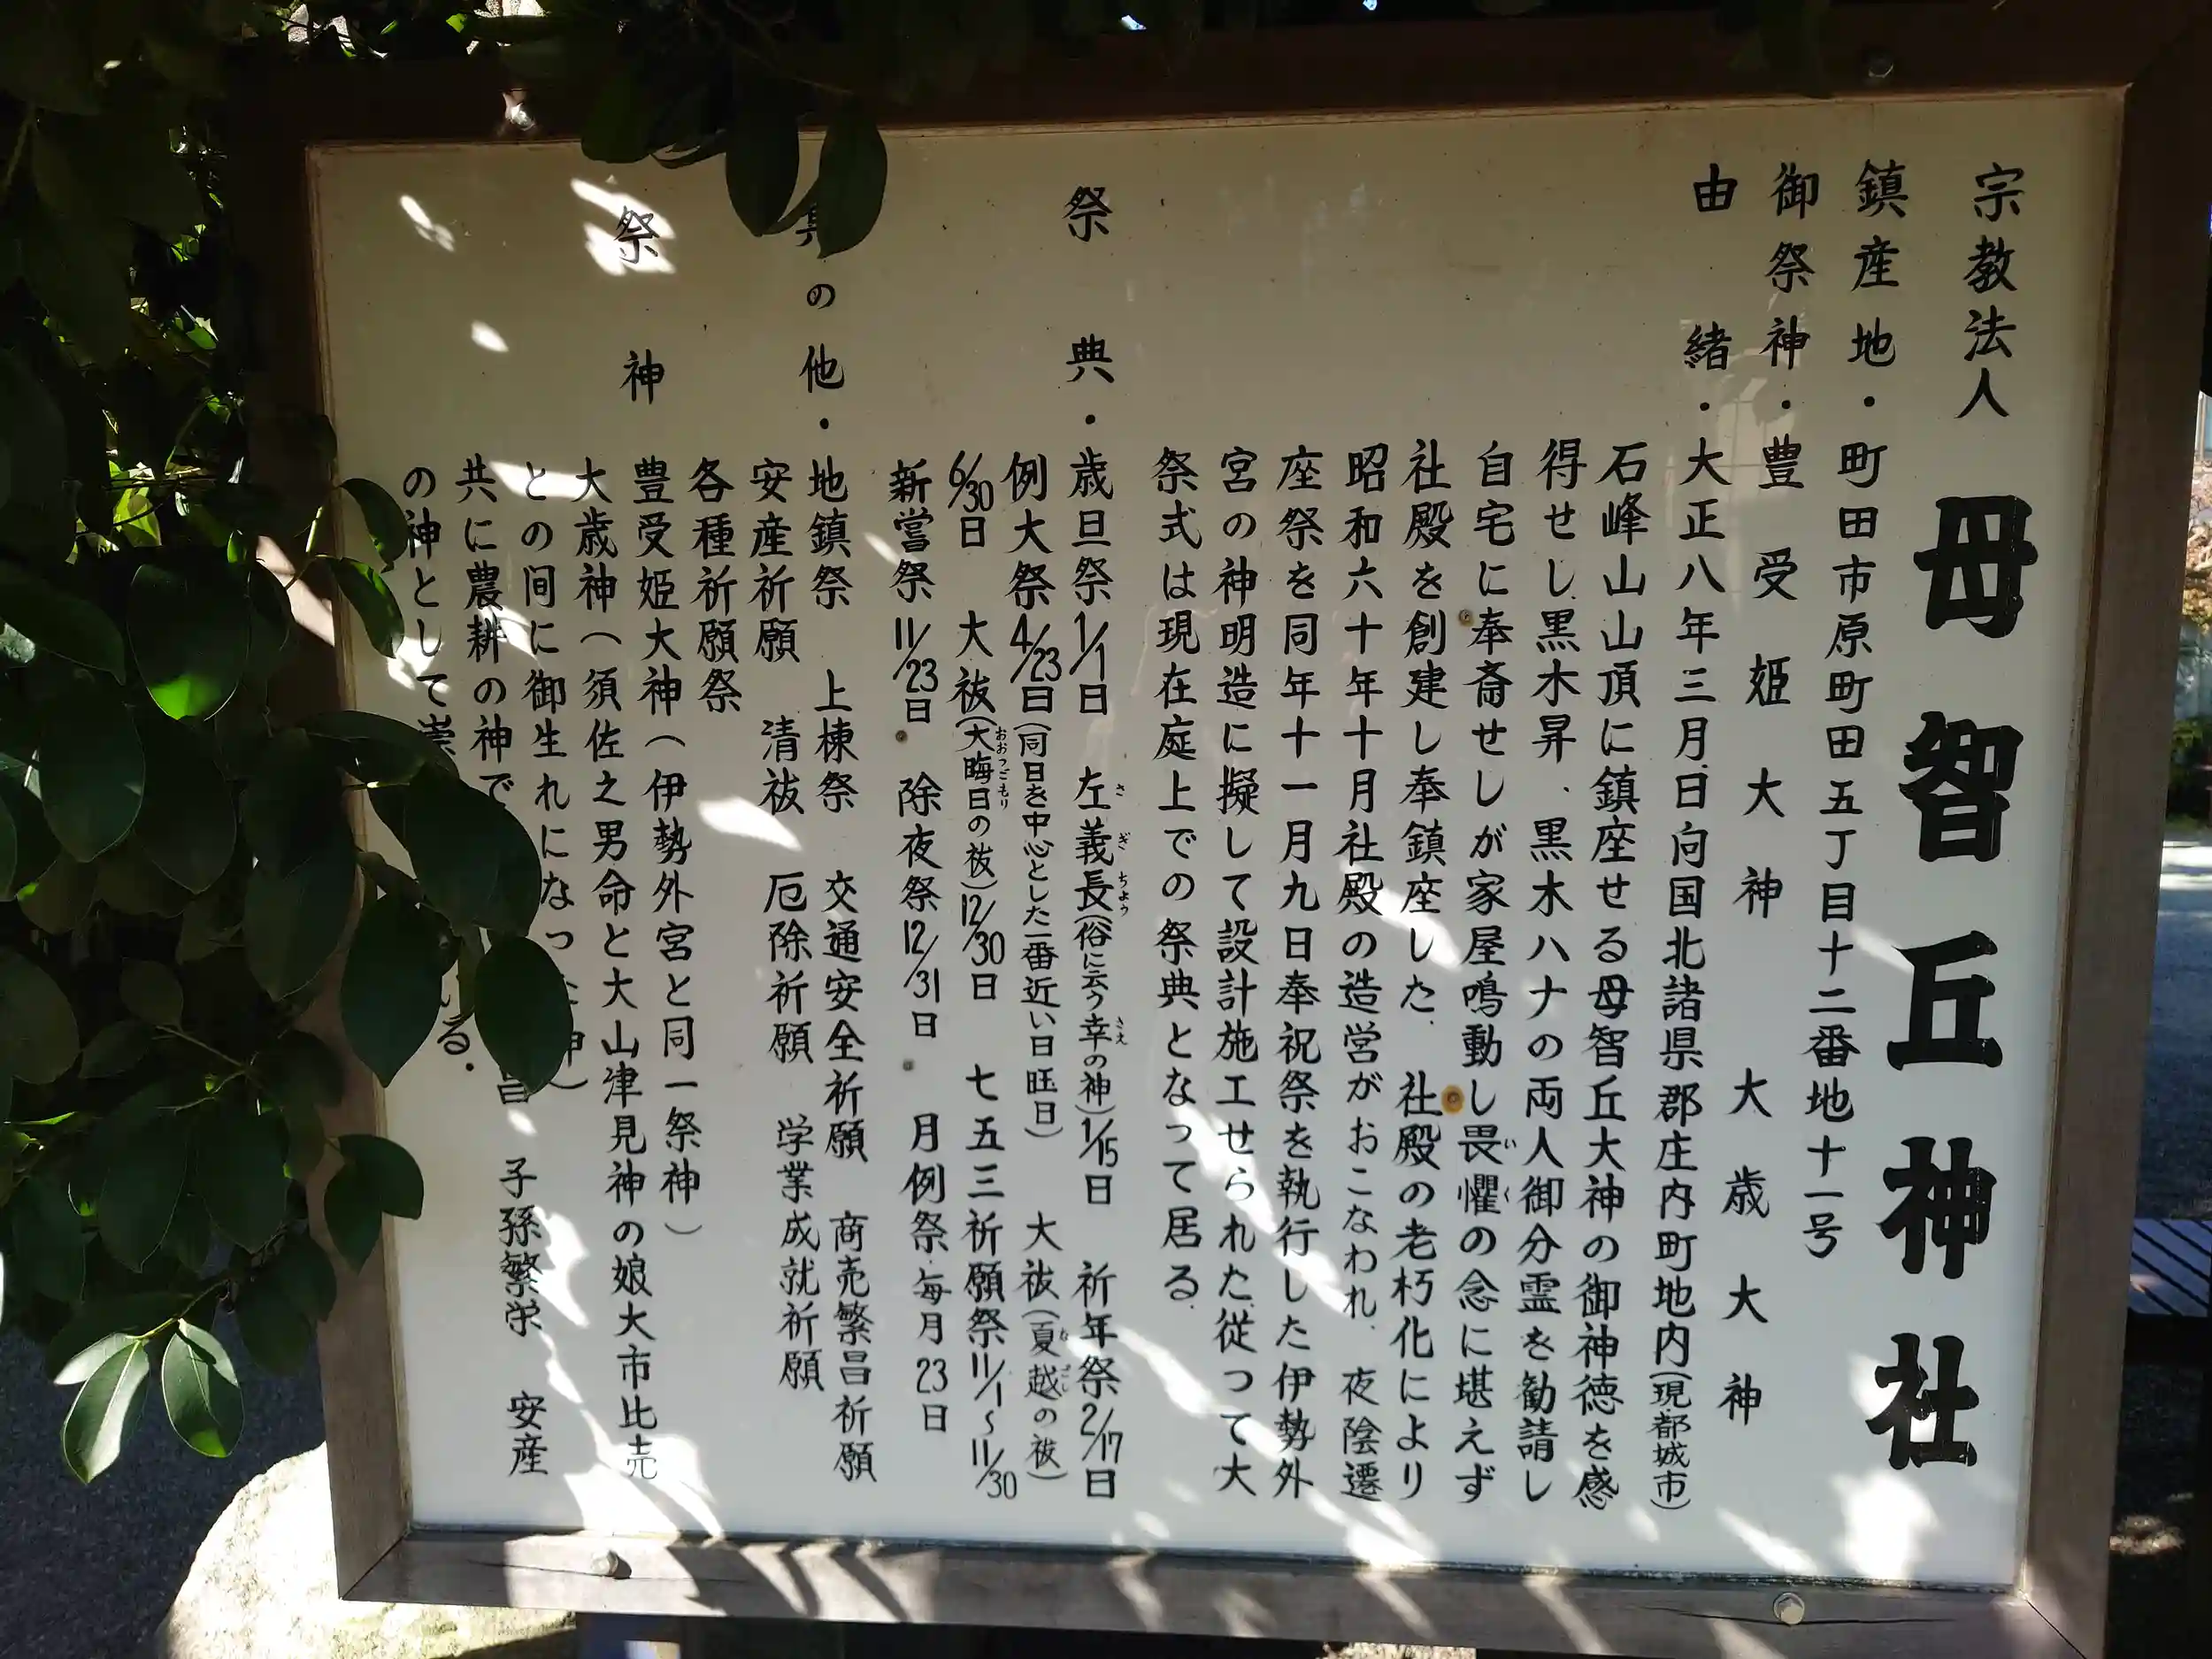 宗教法人 母智丘神社
鎮産地・町田市原町田五丁目十二番地十一号
御祭神・豊受姫大神 大歳大神
由緒・大正八年三月日向国北諸県郡庄内町地内(現都城市)
石峰山山頂に鎮座せる母智丘大神の御神徳を感
得せし黒木昇、黒木ハナの両人御分霊を勧請し
自宅に奉斎せしが家屋鳴動し畏懼の念に堪えず
いく
社殿を創建し奉鎮座した。社殿の老朽化により
昭和六十年十月社殿の造営がおこなわれ、夜陰遷
座祭を同年十一月九日奉祝祭を執行した伊勢外
宮の神明造に擬して設計施工せられた従って大
祭式は現在庭上での祭典となって居る。
祭典・歳旦祭1/1日 左義長(俗に云う幸の神)1/15日 祈年祭2/17日
さぎちょう さえ
例大祭4/23日(同日を中心とした一番近い日旺日) 大祓(夏越の祓)
なごし
6/30日 大祓(大晦日の祓)12/30日 七五三祈願祭11/1~11/30
おおつごもり
新嘗祭11/23日 除夜祭12/31日 月例祭・毎月23日
の他・地鎮祭 上棟祭 交通安全祈願 商売繁昌祈願
安産祈願 清祓 厄除祈願 学業成就祈願
各種祈願祭
祭神 豊受姫大神(伊勢外宮と同一祭神)
大歳神(須佐之男命と大山津見神の娘大市比売
との間に御生れになった神)
共に農耕の神で 子孫繁栄 安産
の神として いる。